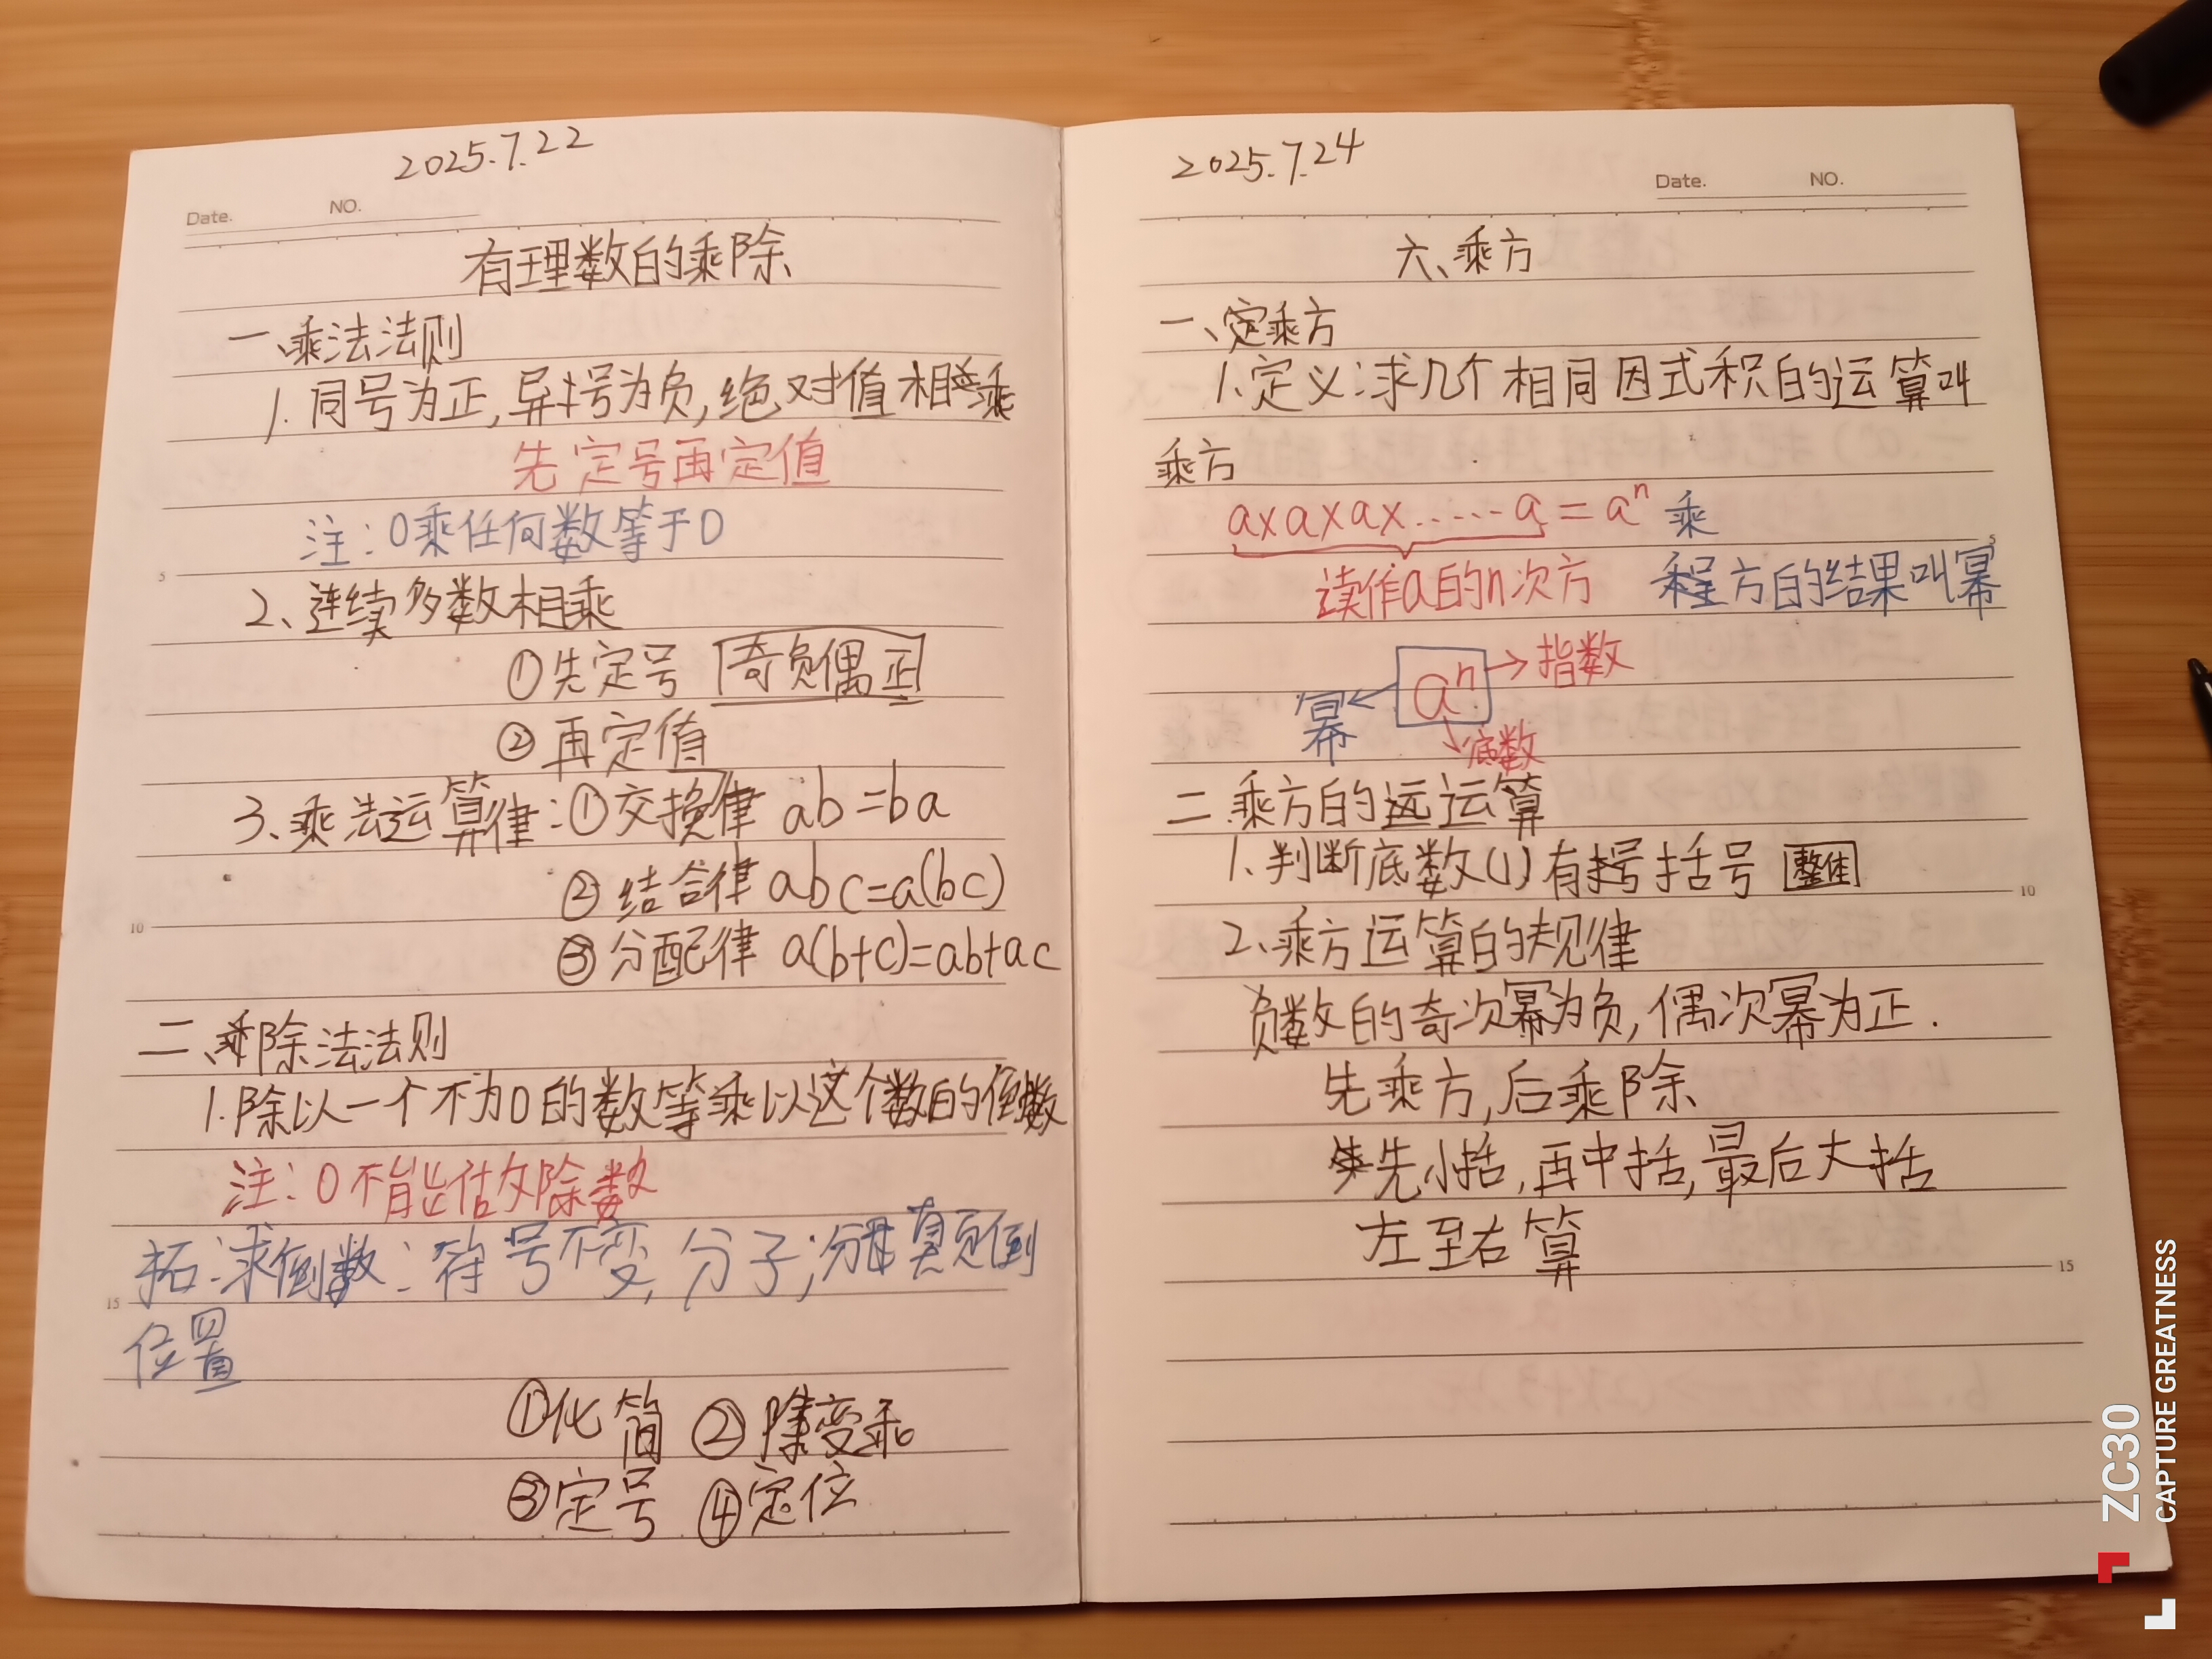 2025.7.22
Date. NO.
有理数的乘除
一、乘法法则
1. 同号为正,异号为负,绝对值相乘
先定号再定值
注:0乘任何数等于0
2、连续多数相乘
①先定号 奇负偶正
②再定值
3、乘法运算律:①交换律 ab=ba
②结合律 abc=a(bc)
③分配律 a(b+c)=ab+ac
二、除法法则
1.除以一个不为0的数等乘以这个数的倒数
注:0不能做除数
拓:求倒数:符号不变,分子;分母颠倒
位置
①化简 ②除变乘
③定号 ④定位
5
10
15
2025.7.24
Date. NO.
六、乘方
一、乘方
1.定义:求几个相同因式积的运算叫
乘方
a×a×a×……a=aⁿ 乘
读作a的n次方 方的结果叫幂
aⁿ→指数
幂
底数
二.乘方的运算
1.判断底数(1)有括号 整体
2.乘方运算的规律
负数的奇次幂为负,偶次幂为正.
先乘方,后乘除
先小括,再中括,最后大括
左至右算
5
10
15
ZC30
CAPTURE GREATNESS